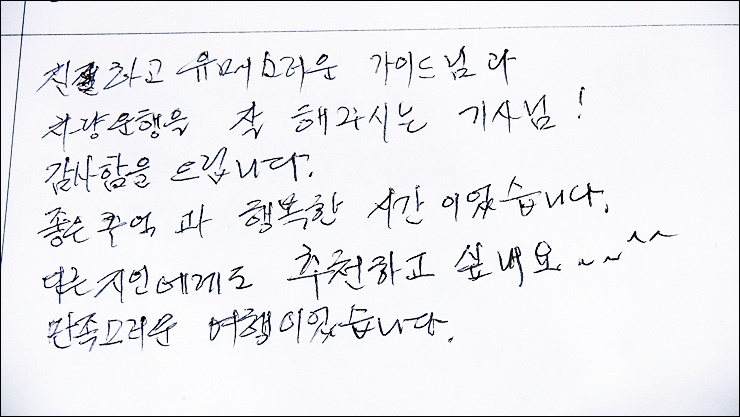 친절하고 유머스러운 가이드님과
차량운행을 잘 해주시는 기사님!
감사함을 드립니다.
좋은 추억 과 행복한 시간이었습니다.
다른 지인에게도 추천하고 싶네요~~^^
만족스러운 여행이었습니다.